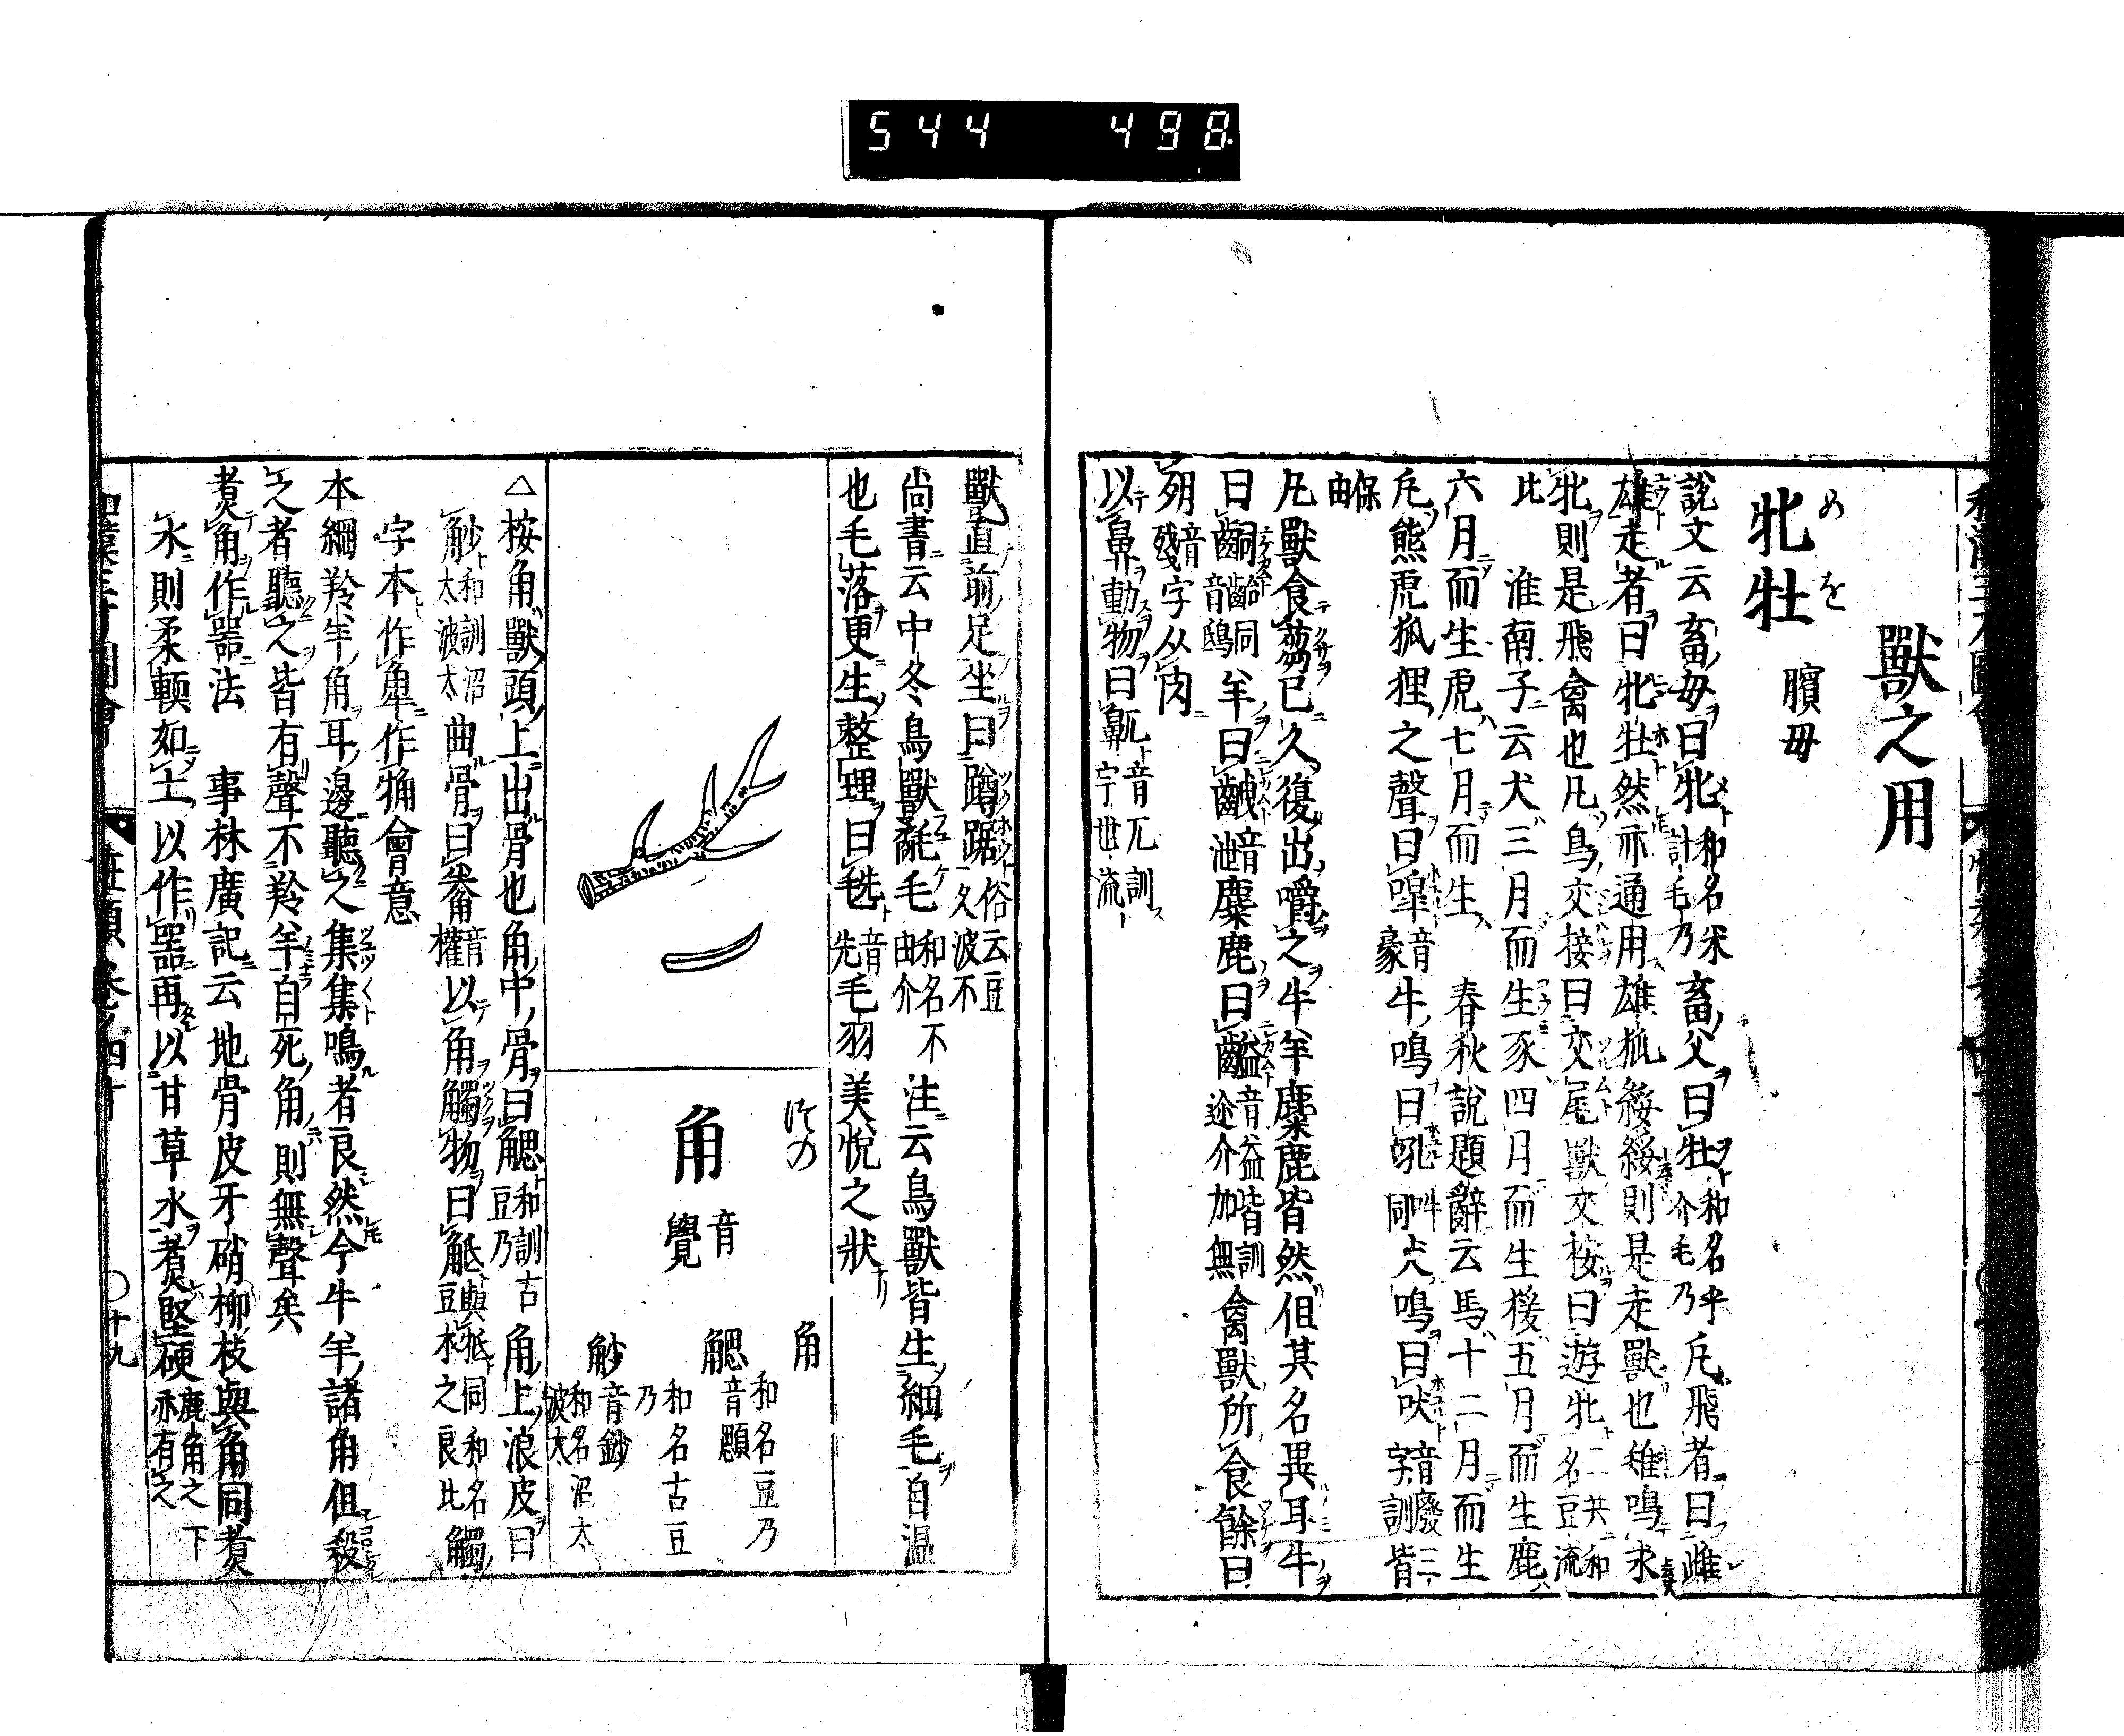 544 498
獸之用
めを
牝牡 臏毋
說文云畜毋曰牝和名米計毛乃畜父曰牡和名乎介毛乃凡飛者曰雌
雄走者曰牝牡然亦通用雄狐綏綏則是走獸也雉鳴求
牝則是飛禽也凡鳥交接曰交尾獸交接曰遊牝二共和名豆流
比 淮南子云犬三月而生豕四月而生猨五月而生鹿
六月而生虎七月而生 春秋說題辭云馬十二月而生
凡熊虎狐狸之聲曰嘷音豪牛鳴曰吼吽同犬鳴曰吠音廢字訓皆
保由
凡獸食芻已久復出嚼之牛羊麋鹿皆然但其名異耳牛
曰齝齝同音鴟羊曰齥音泄麋鹿曰齸音益皆訓迩介加無禽獸所食餘曰
𣧻音殘字从肉
以鼻動物曰鼿音兀訓宇世流
獸直前足坐曰蹲踞俗云豆久波不
尚書云中冬鳥獸氄毛和名不由介注云鳥獸皆生細毛自温
也毛落更生整理曰毨音先毛羽美悅之狀
つの
角 音覺
角 和名豆乃
䚡 音顋 和名古豆乃
觘 音鈔 和名沼太波太
△桉角獸頭上出骨也角中骨曰䚡和訓古豆乃角上浪皮曰
觘和訓沼太波太曲骨曰觠音權以角觸物曰觝與抵同和名豆木之良比觸
字本作𧢻作㹱會意
本綱羚羊角耳邊聽之集集鳴者良然今牛羊諸角但殺
之者聽之皆有聲不羚羊自死角則無聲矣
煑角作噐法 事林廣記云地骨皮牙硝柳枝與角同煑
水則柔輭如土以作噐再以甘草水煑堅硬鹿角之下亦有之
十九